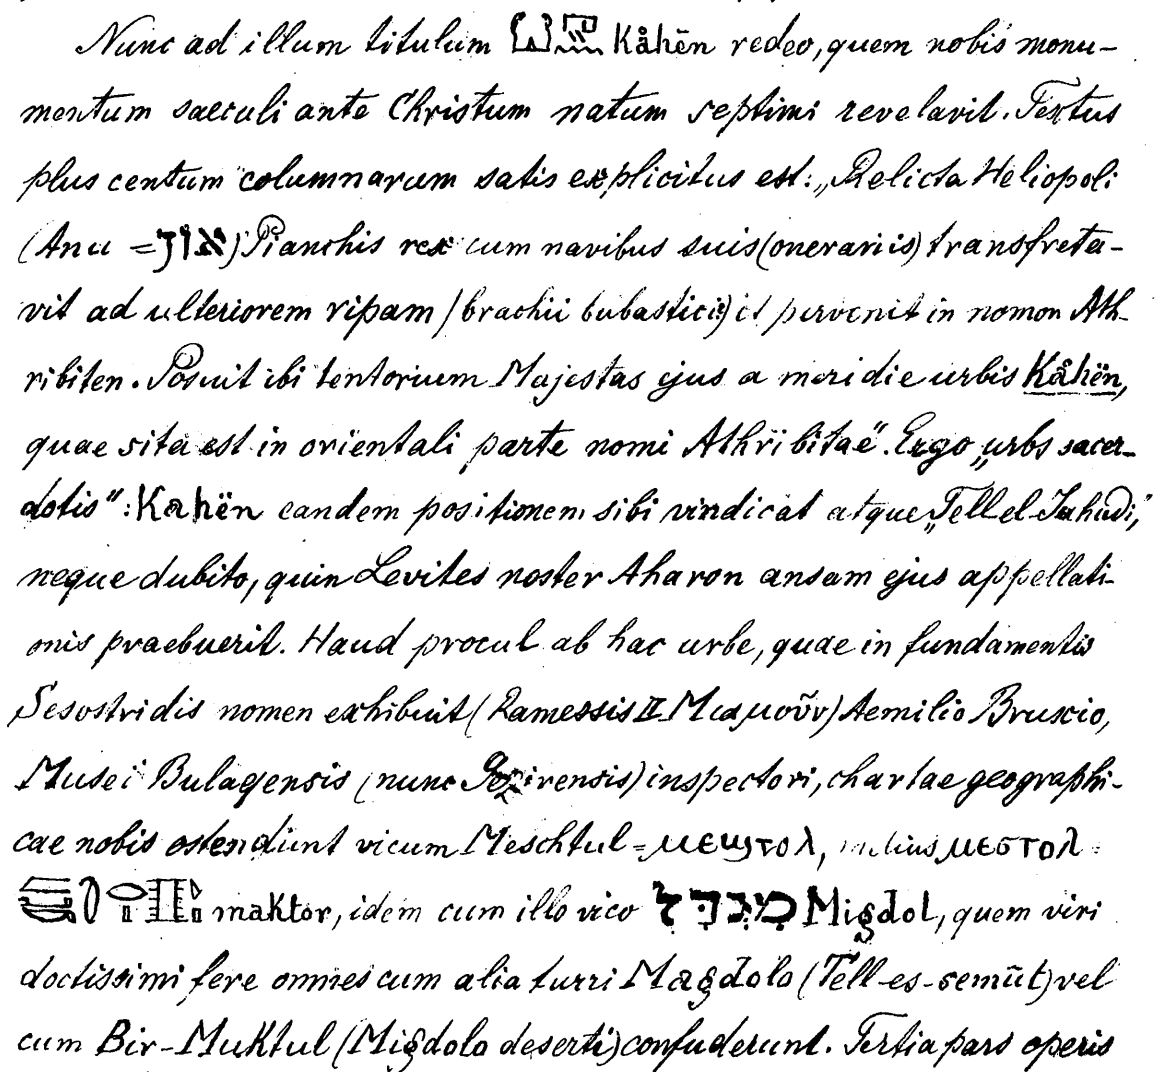 Nunc ad illum titulum Kåhēn redeo, quem nobis monu-
mentum saeculi ante Christum natum septimi revelavit. Textus
plus centum columnarum satis explicitus est: „Relicta Heliopoli
(Anu = אוֹן) Pianchis rex cum navibus suis (onerariis) transfreta-
vit ad ulteriorem ripam (brachii bubastici) et pervenit in nomon Ath-
ribiten. Posuit ibi tentorium Majestas ejus a meridie urbis Kåhën,
quae sita est in orientali parte nomi Athribitae". Ergo „urbs sacer-
dotis": Kahën eandem positionem sibi vindicat atque „Tell el-Jahudi,"
neque dubito, quin Levites noster Aharon ansam ejus appellati-
onis praebuerit. Haud procul ab hac urbe, quae in fundamentis
Sesostridis nomen exhibuit (Ramessis II Μιαμοῦν) Aemilio Bruscio,
Musei Bulagensis (nunc Gezirensis) inspectori, chartae geographi-
cae nobis ostendunt vicum Meschtul = ⲙⲉϣⲧⲟⲗ, melius ⲙⲉⲥⲧⲟⲗ =
maktor, idem cum illo vico מִגְדֹּל Migdol, quem viri
doctissimi fere omnes cum alia turri Magdolo (Tell-es-semūt) vel
cum Bir-Muktul (Migdolo deserti) confuderunt. Tertia pars operis